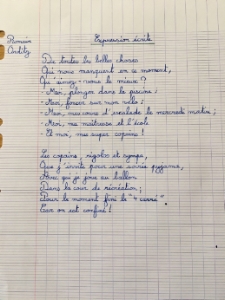 Romain
Expression écrite
De toutes les belles choses
Qui nous manquent en ce moment,
Qu'aimez-vous le mieux ?
- Moi, plonger dans la piscine ;
- Moi, foncer sur mon vélo ;
- Moi, ma maîtresse et l'école
Et moi, mes super copains !
Les copains, rigolos et sympas,
Que j'invite pour une soirée pyjama,
Avec qui je joue au ballon
Dans la cour de récréation ;
Pour le moment fini le "4 carré"
Car on est confiné !